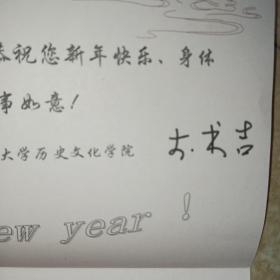 恭祝您新年快乐、身体
事如意！
大学历史文化学院
ew year !